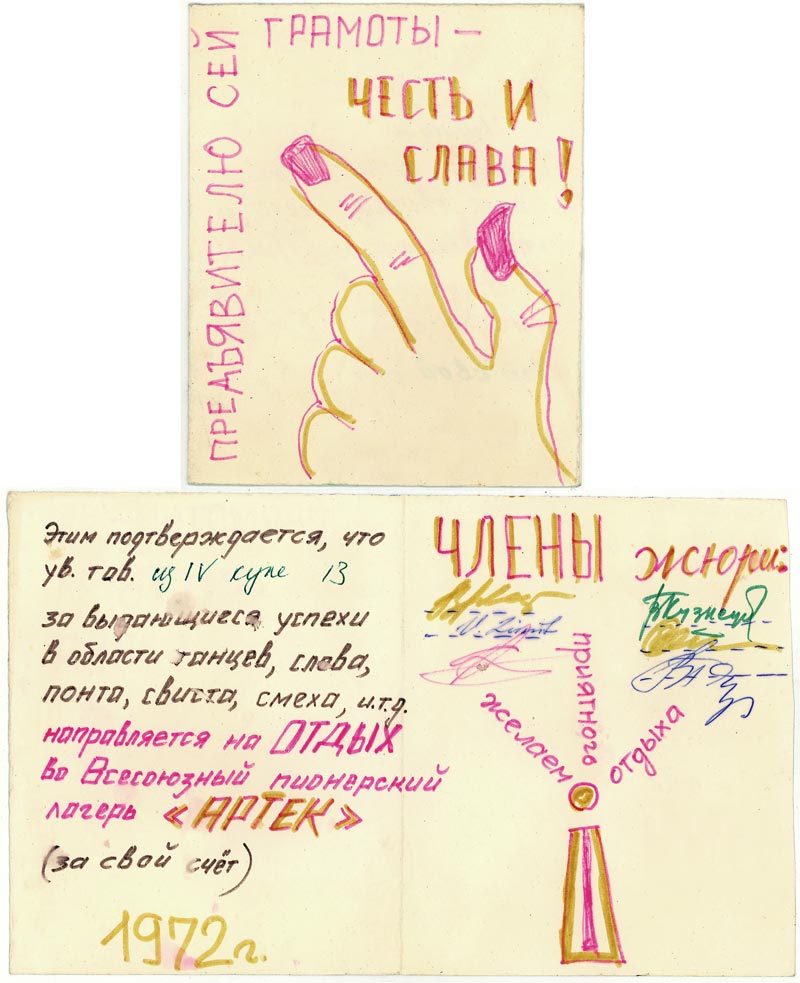 ПРЕДЪЯВИТЕЛЮ СЕЙ
ГРАМОТЫ —
ЧЕСТЬ И
СЛАВА!
Этим подтверждается, что
ув. тов. из IV купе 13
за выдающиеся успехи
в области танцев, слова,
понта, свиста, смеха, и.т.д.
направляется на ОТДЫХ
во Всесоюзный пионерский
лагерь «АРТЕК»
(за свой счёт)
1972 г.
ЧЛЕНЫ жюри:
желаем
приятного
отдыха